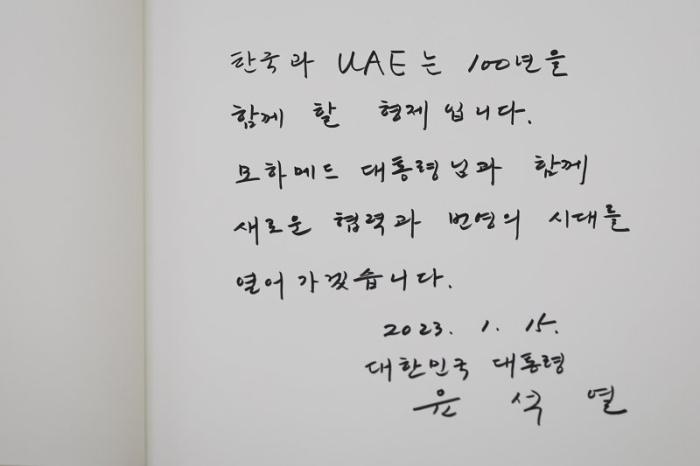 한국과 UAE는 100년을
함께 할 형제입니다.
모하메드 대통령님과 함께
새로운 협력과 번영의 시대를
열어가겠습니다.
2023. 1. 15.
대한민국 대통령
윤 석 열